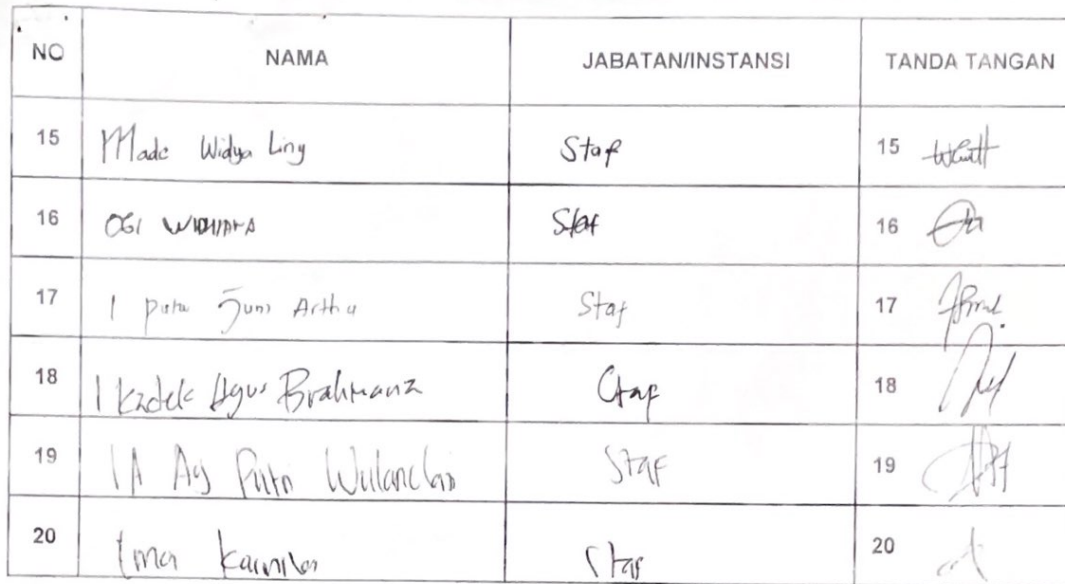 NO NAMA JABATAN/INSTANSI TANDA TANGAN
15 Made Widya Ling Staf 15
16 OGI WIDHIANA Staf 16
17 I Putu Juni Artha Staf 17
18 I Kadek Agus Brahmana Staf 18
19 IA Ag Putri Staf 19
20 Staf 20